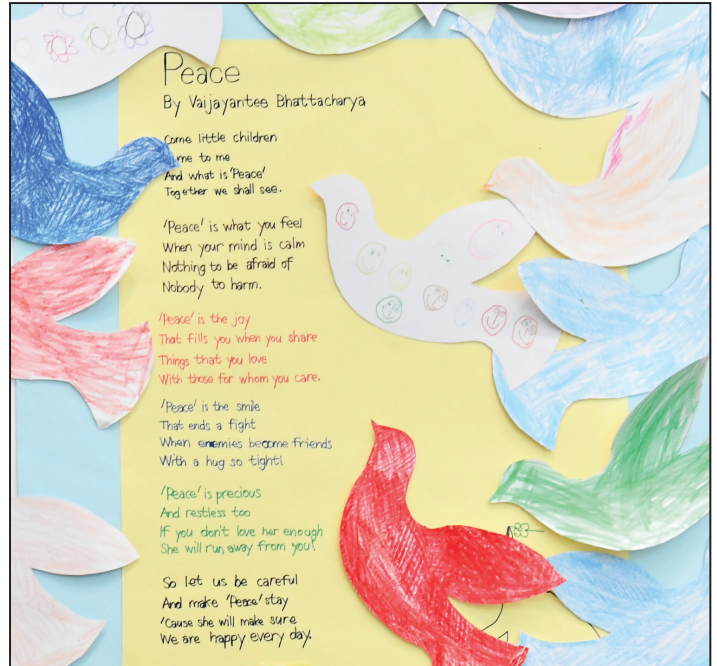 Peace
By Vaijayantee Bhattacharya
Come little children
me to me
And what is 'Peace'
Together we shall see.
'Peace' is what you feel
When your mind is calm
Nothing to be afraid of
Nobody to harm.
'Peace' is the joy
That fills you when you share
Things that you love
With those for whom you care.
'Peace' is the smile
That ends a fight
When enemies become friends
With a hug so tight!
'Peace' is precious
And restless too
If you don't love her enough
She will run away from you!
So let us be careful
And make 'Peace' stay
'Cause she will make sure
We are happy every day.